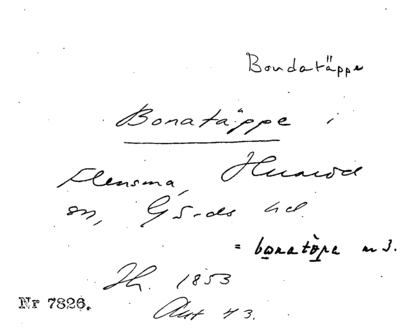 Bondatäppe
Bonatäppe i
Flensma, Huaröd
sn, Gärds hd.
= bonatäpe n 3.
Jh. 1853
43.
Nr 7826.